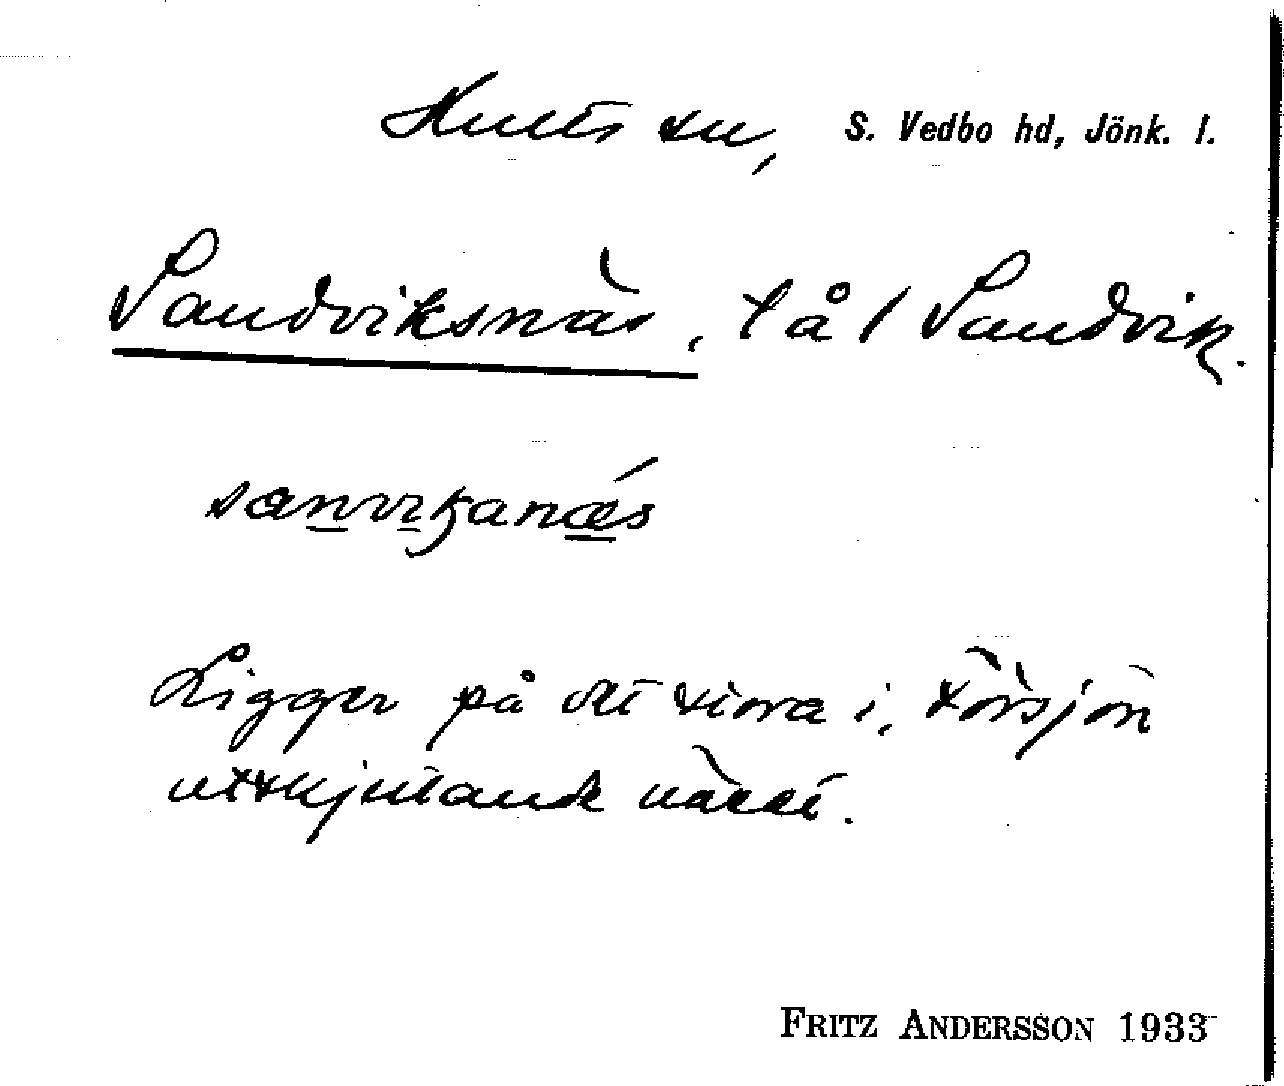 Hults sn, S. Vedbo hd, Jönk. l.
Sandviksnäs, t å / Sandvik.
sanvikanæs
Ligger på det stora i,
utskjutande näset.
FRITZ ANDERSSON 1933